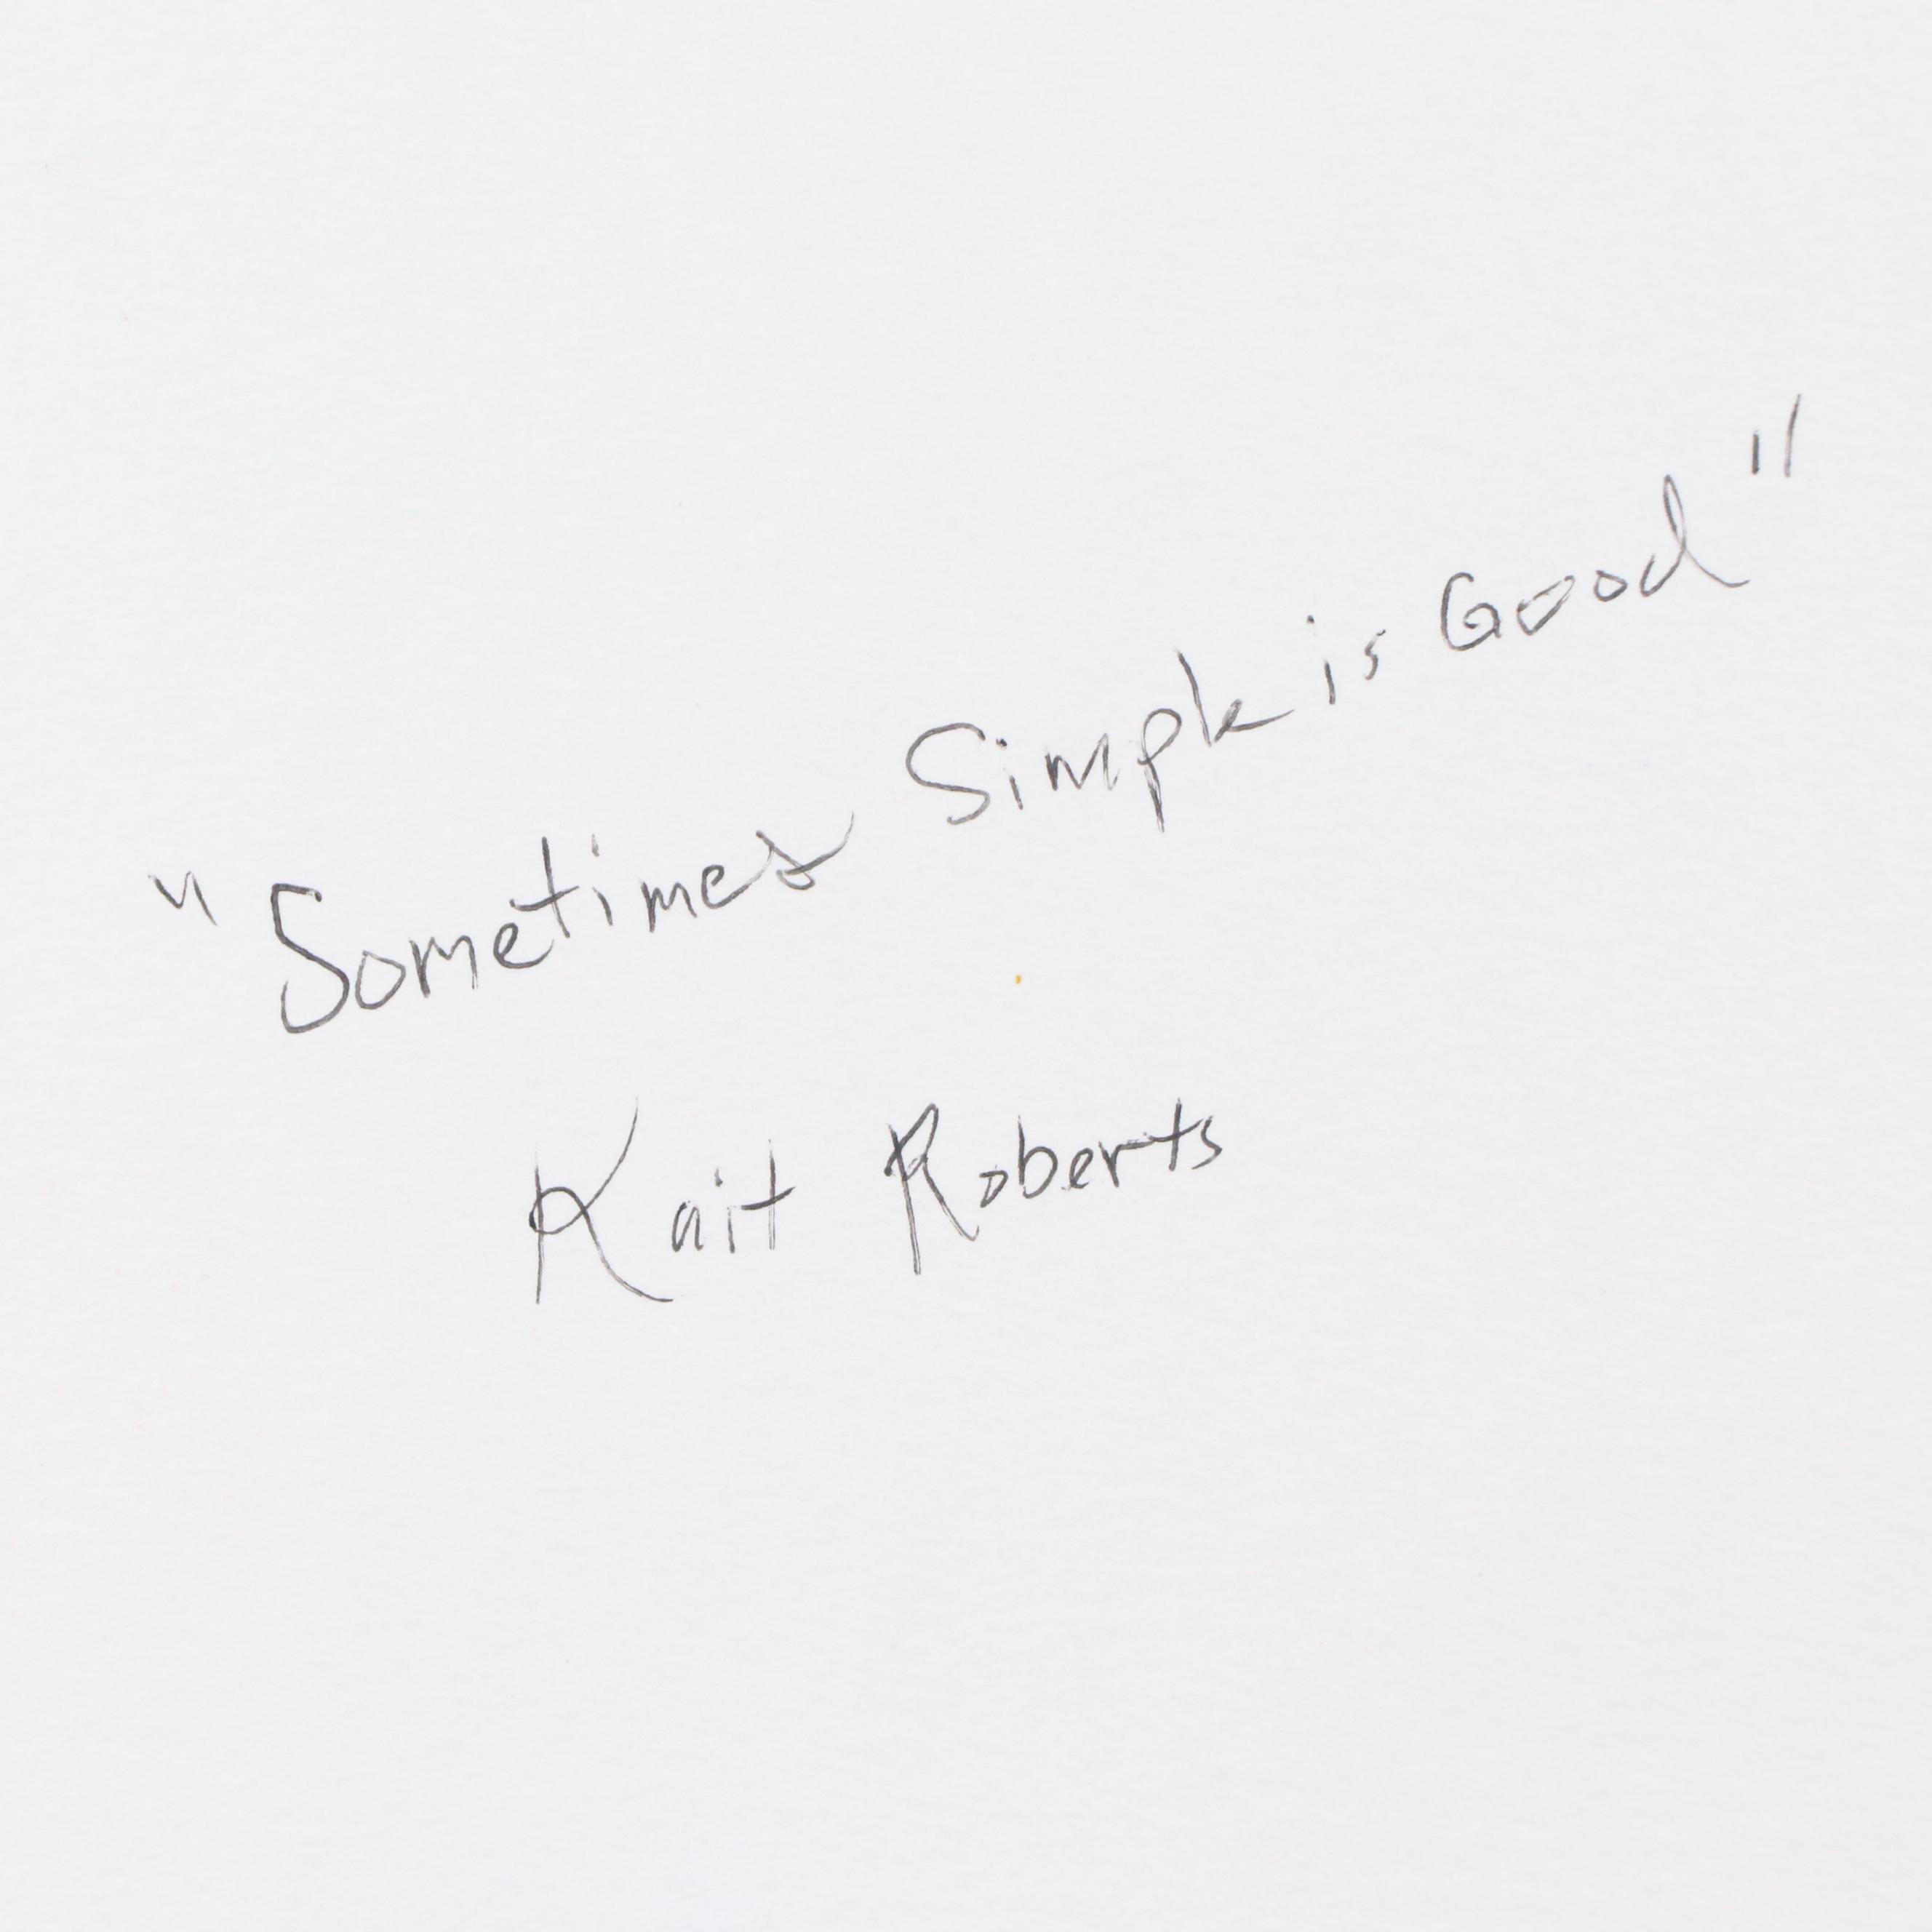 "Sometimes Simple is Good"
Kait Roberts